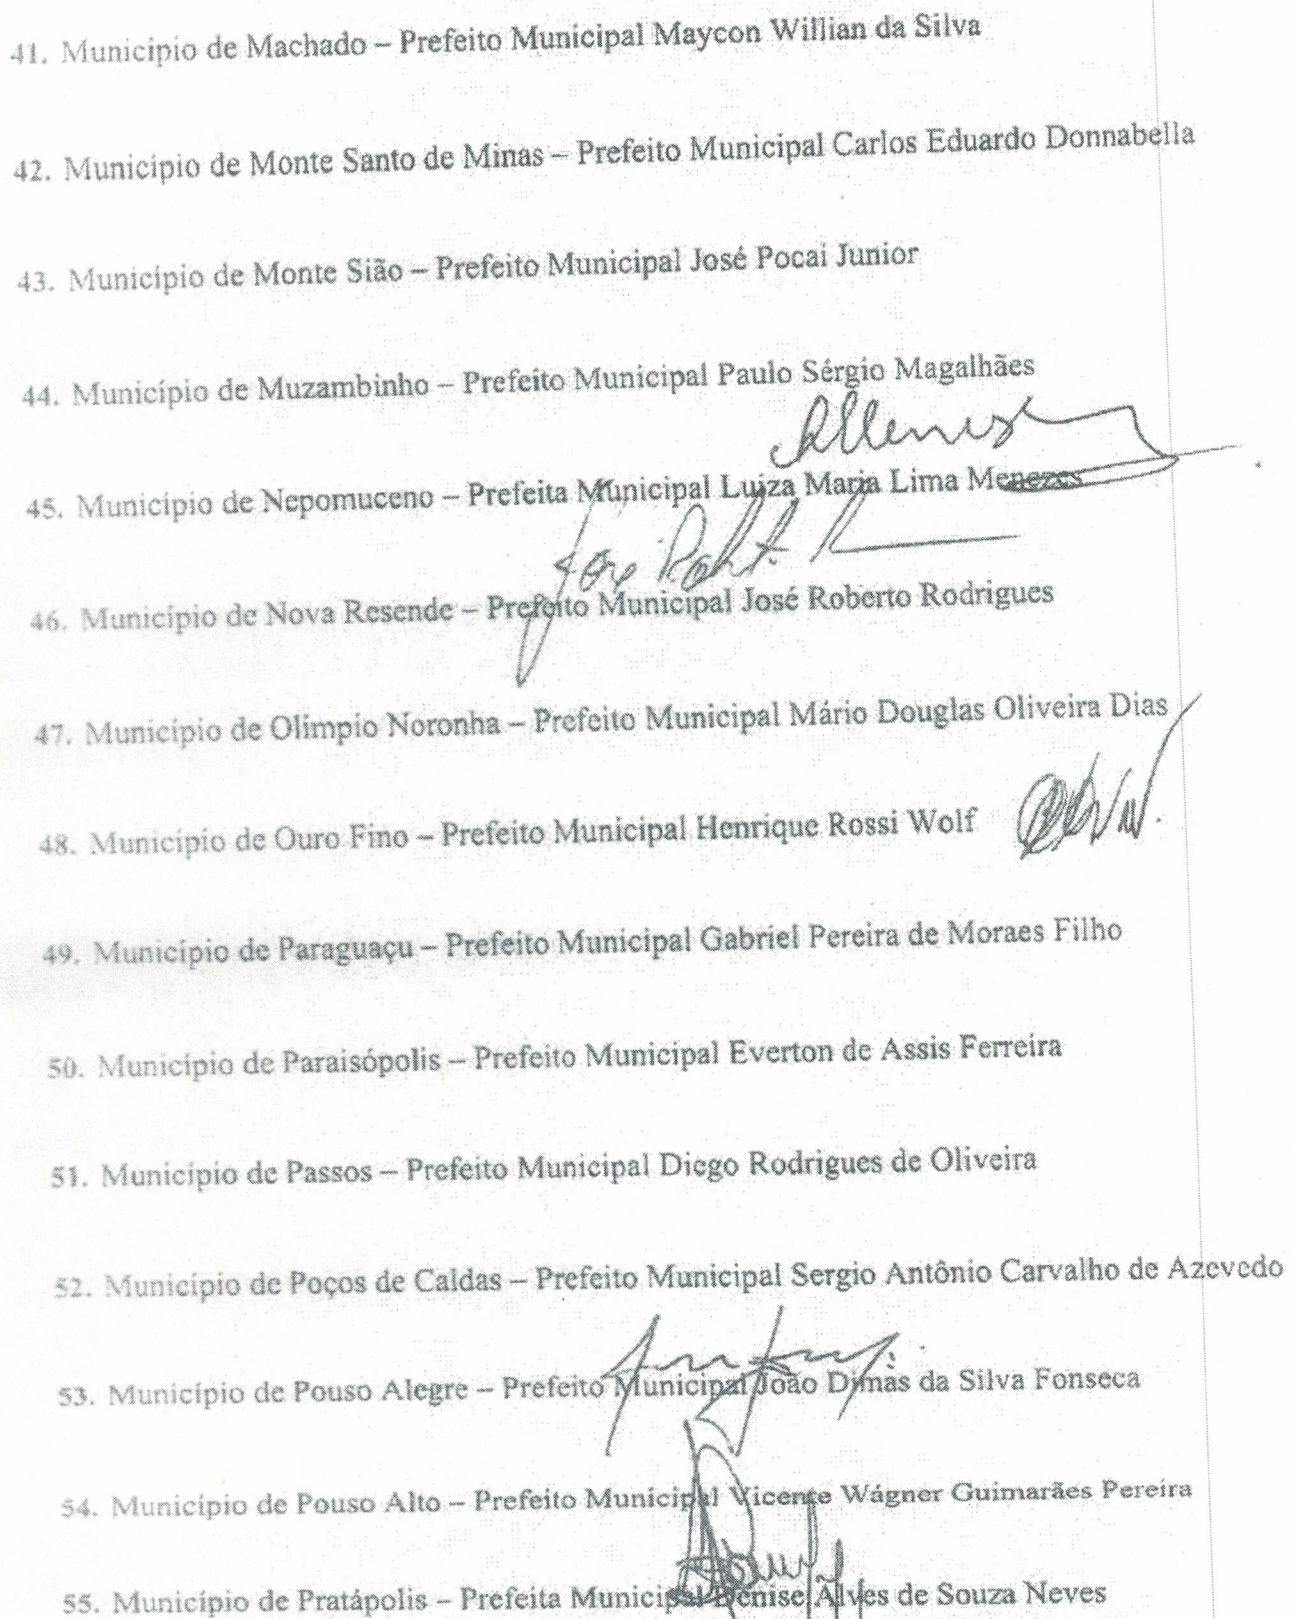 41. Município de Machado – Prefeito Municipal Maycon Willian da Silva
42. Município de Monte Santo de Minas – Prefeito Municipal Carlos Eduardo Donnabella
43. Município de Monte Sião – Prefeito Municipal José Pocai Junior
44. Município de Muzambinho – Prefeito Municipal Paulo Sérgio Magalhães
45. Município de Nepomuceno – Prefeita Municipal Luiza Maria Lima Menezes
46. Município de Nova Resende – Prefeito Municipal José Roberto Rodrigues
47. Município de Olimpio Noronha – Prefeito Municipal Mário Douglas Oliveira Dias
48. Município de Ouro Fino – Prefeito Municipal Henrique Rossi Wolf
49. Município de Paraguaçu – Prefeito Municipal Gabriel Pereira de Moraes Filho
50. Município de Paraisópolis – Prefeito Municipal Everton de Assis Ferreira
51. Município de Passos – Prefeito Municipal Diego Rodrigues de Oliveira
52. Município de Poços de Caldas – Prefeito Municipal Sergio Antônio Carvalho de Azevedo
53. Município de Pouso Alegre – Prefeito Municipal João Dimas da Silva Fonseca
54. Município de Pouso Alto – Prefeito Municipal Vicente Wágner Guimarães Pereira
55. Município de Pratápolis – Prefeita Municipal Denise Alves de Souza Neves